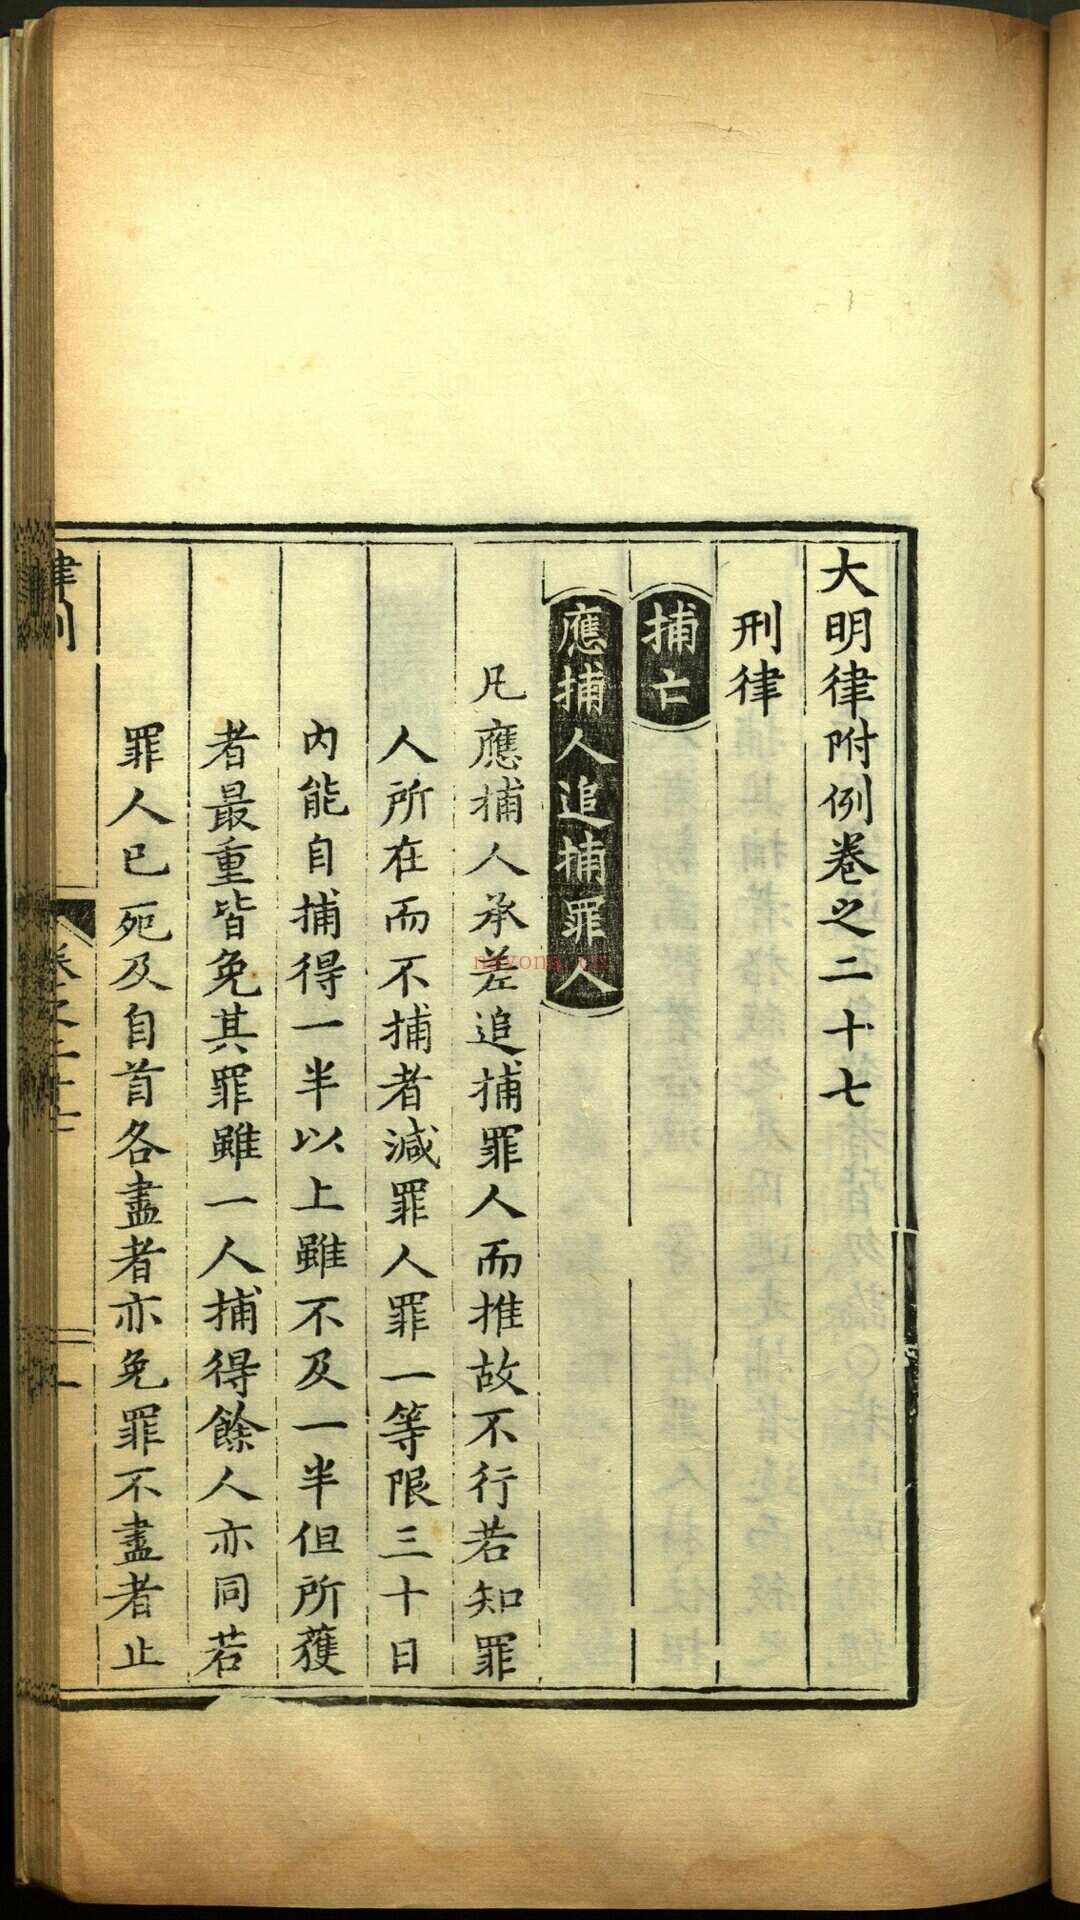 大明律附例卷之二十七
刑律
捕亡
應捕人追捕罪人
凡應捕人承差追捕罪人而推故不行若知罪
人所在而不捕者減罪人罪一等限三十日
內能自捕得一半以上雖不及一半但所獲
者最重皆免其罪雖一人捕得餘人亦同若
罪人已死及自首各盡者亦免罪不盡者止
律例
卷之二十七
一
nayona.cn